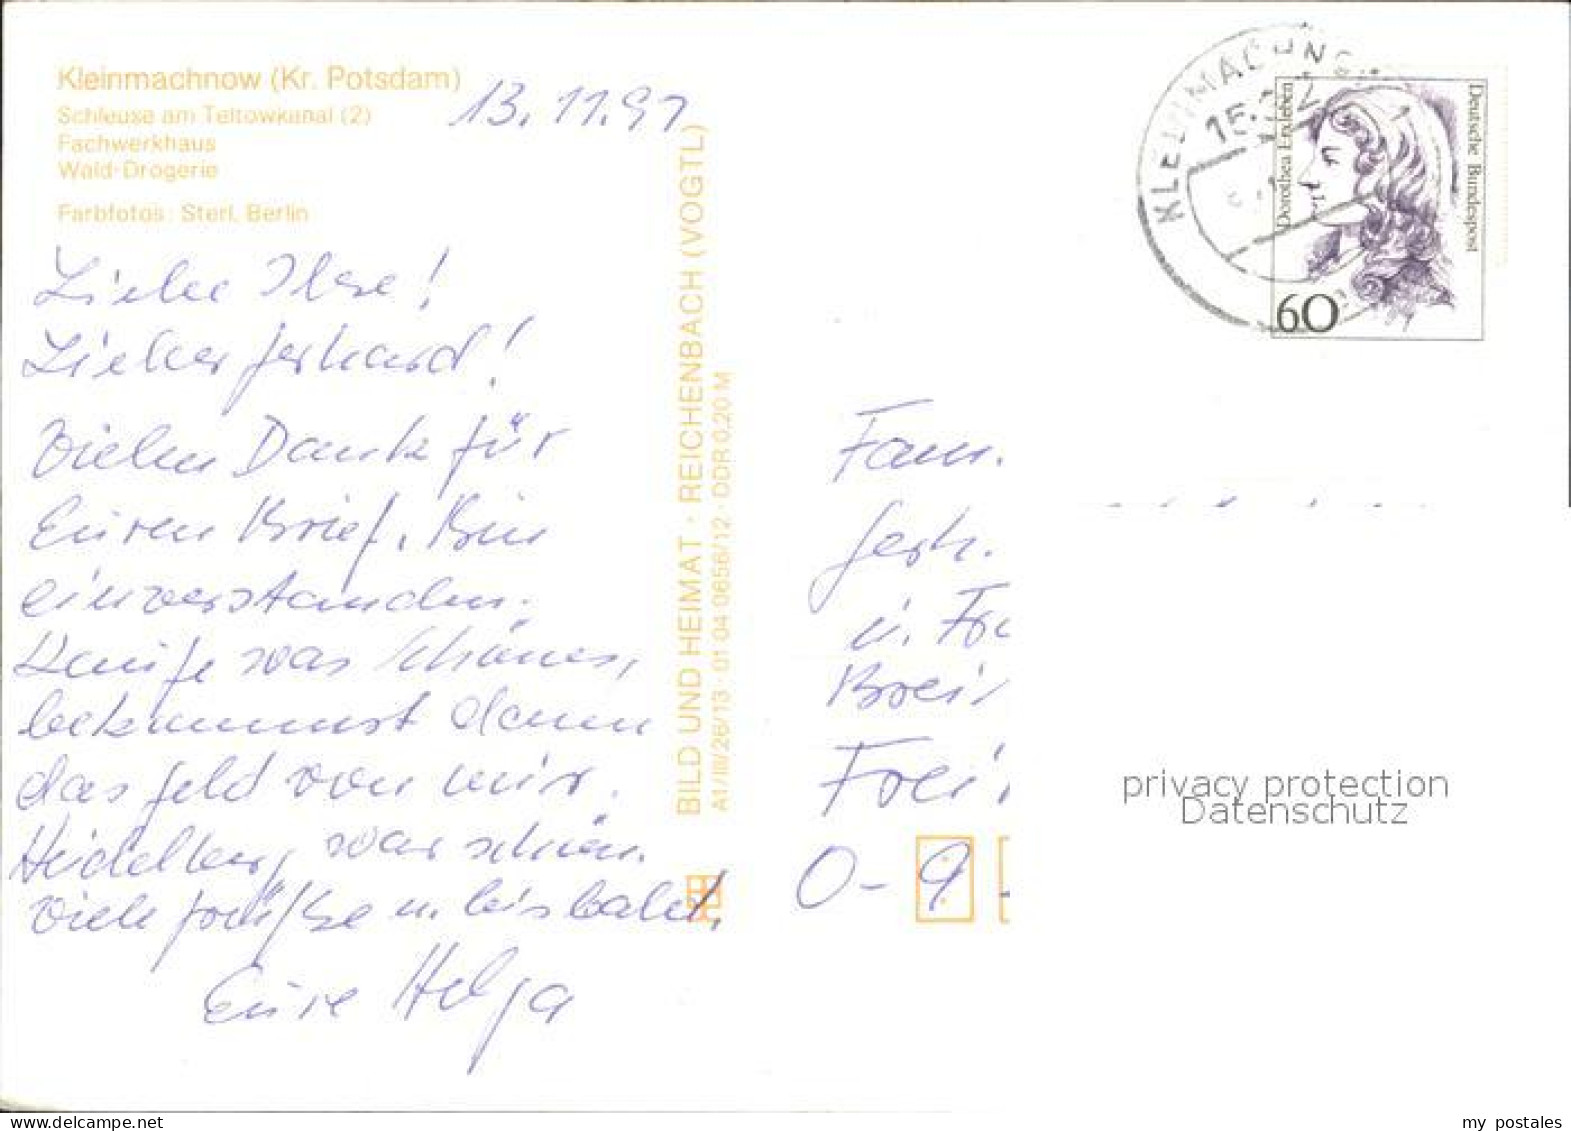 Kleinmachnow (Kr. Potsdam)
Schleuse am Teltowkanal (2)
Fachwerkhaus
Wald-Drogerie
Farbfotos: Sterl, Berlin
13.11.91
Liebe Ilse!
Lieber Gerhard!
Vielen Dank für
Euren Brief. Bin
einverstanden.
Kaufe was Schönes,
bekommst dann
das Geld von mir.
Heidelberg war schön.
Viele Grüße u. bis bald,
Eure Helga
BILD UND HEIMAT · REICHENBACH (VOGTL)
A1/III/26/13 · 01 04 0656/12 · DDR 0,20 M
KLEINMACHNOW
Dorothea Erxleben
Deutsche Bundespost
60
Fam.
Gerh.
u.
O-9
privacy protection
Datenschutz
www.delcampe.net
my_postales